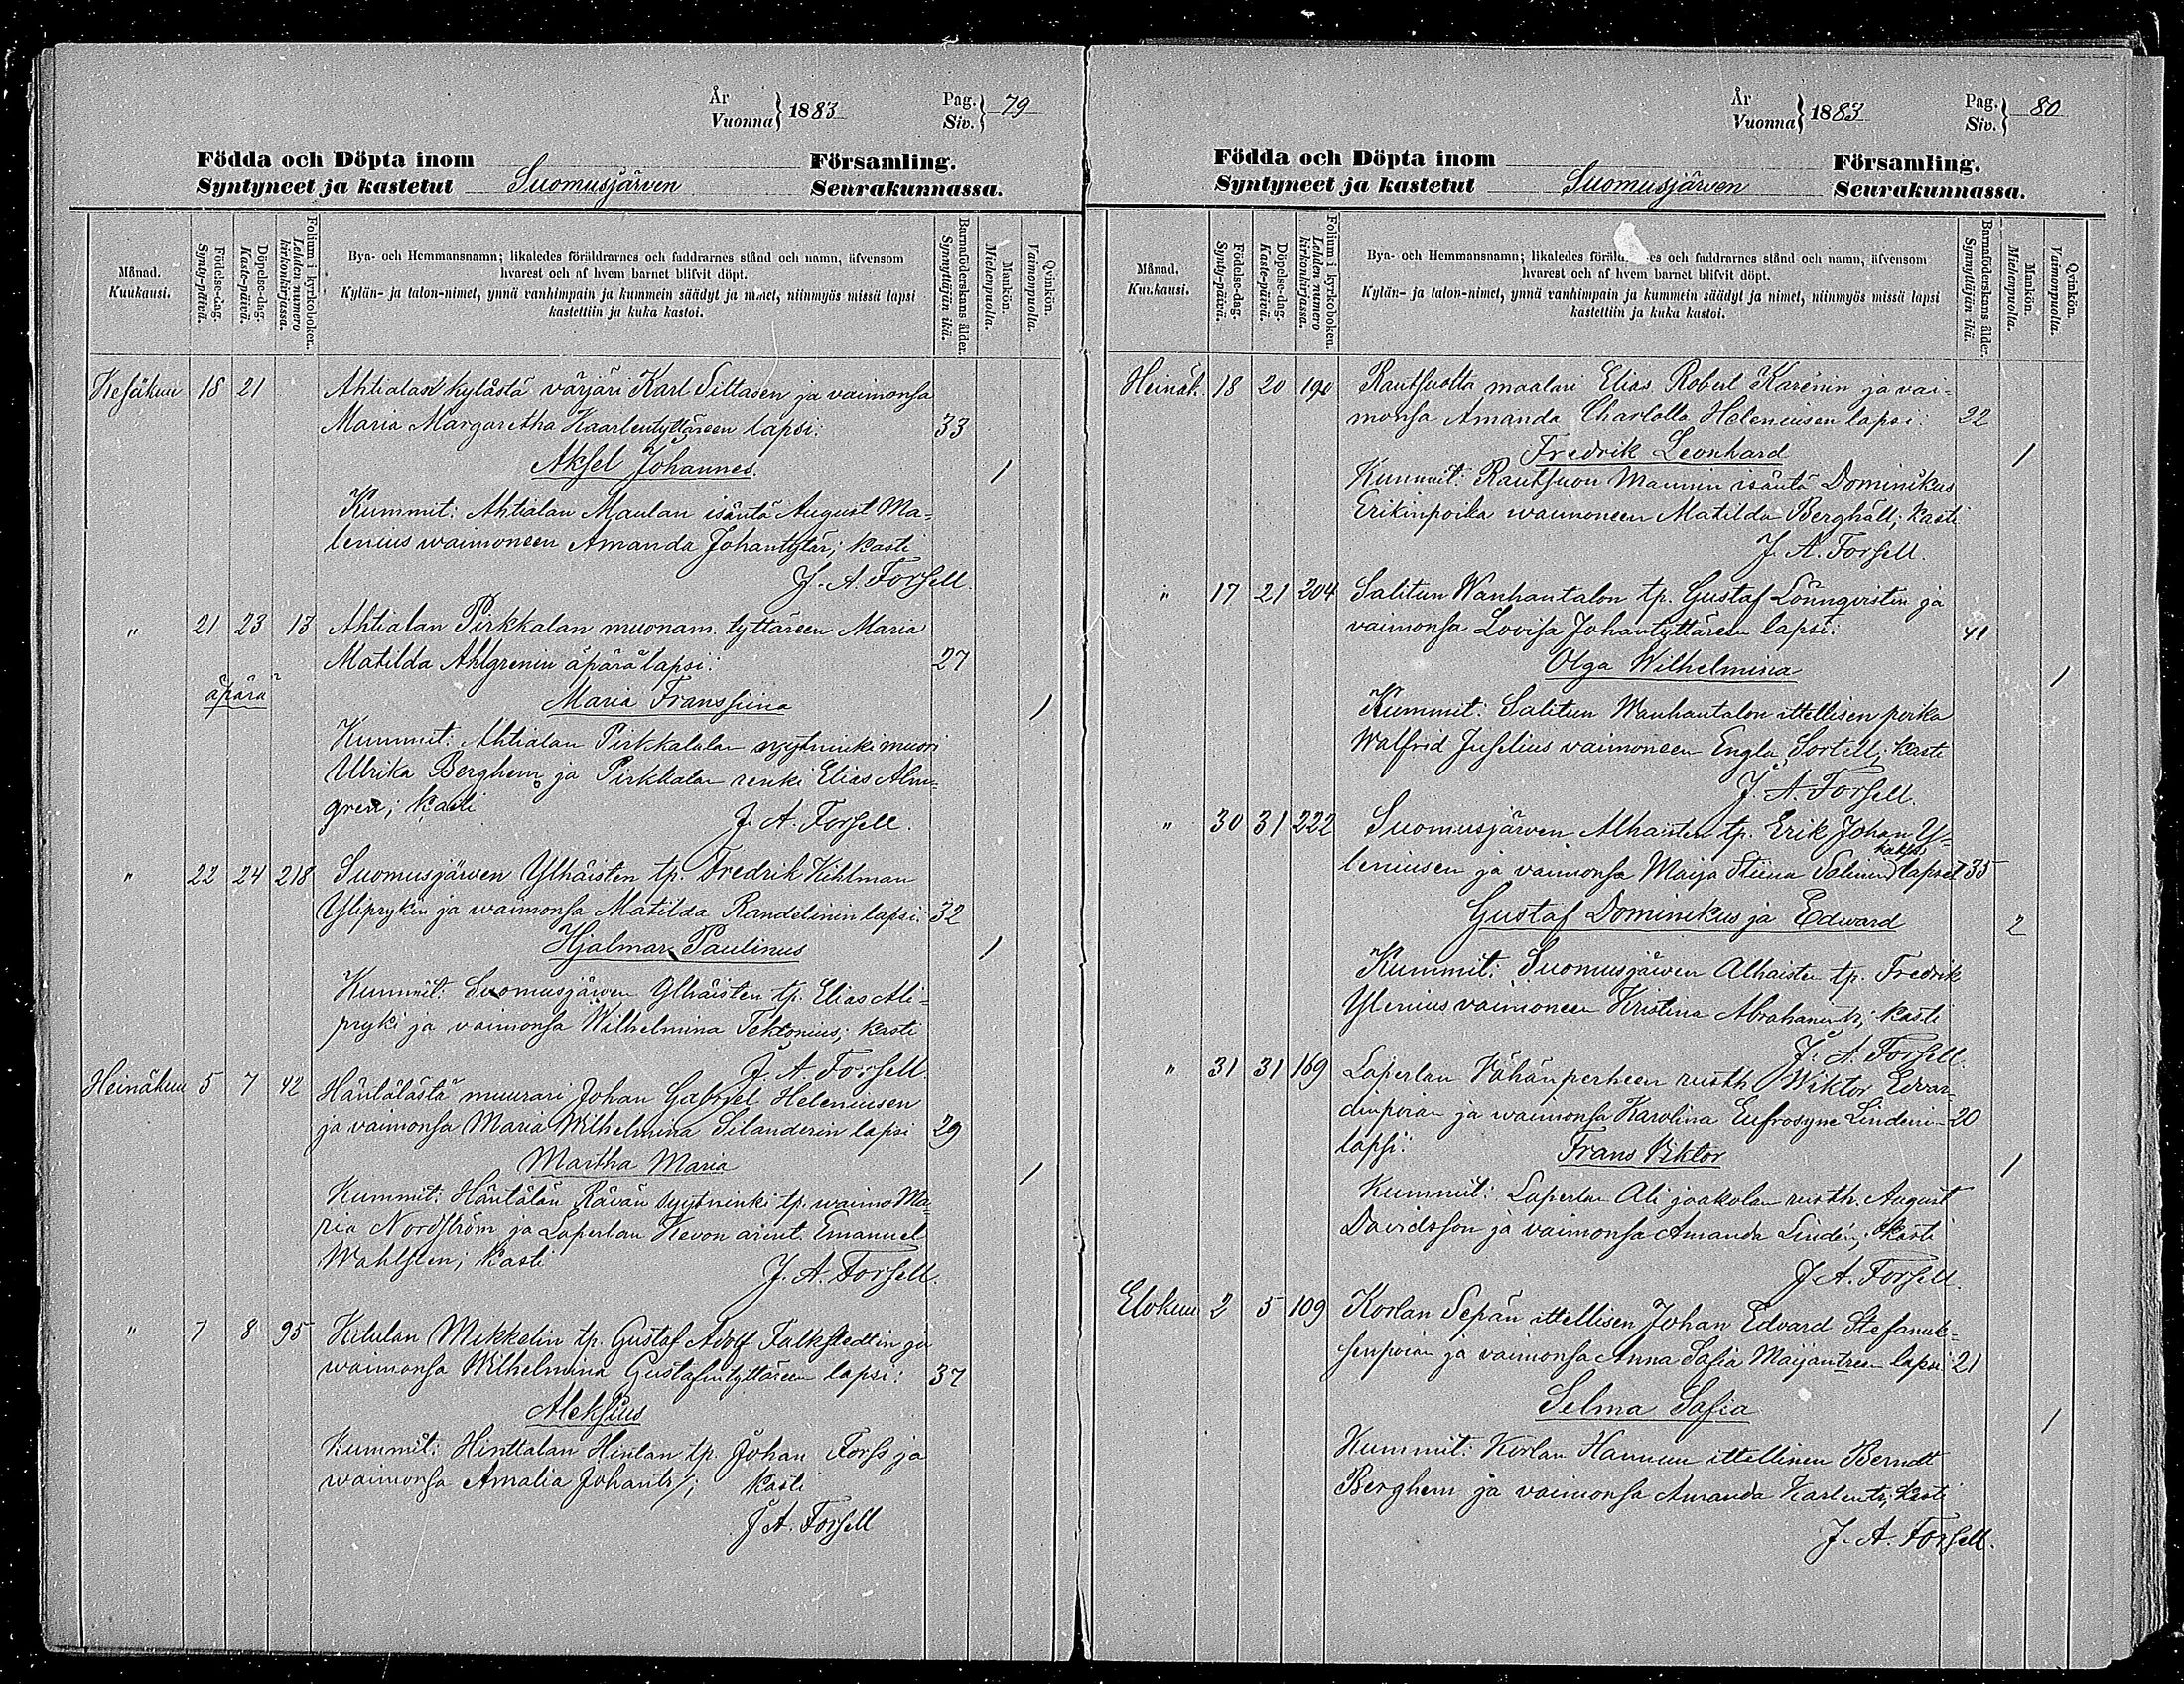 År
Vuonna } 1883
Pag.
Siv. } 79
Födda och Döpta inom Församling.
Syntyneet ja kastetut Suomusjärven Seurakunnassa.
Månad.
Kuukausi.
Födelse-dag.
Synty-päivä.
Döpelse-dag.
Kaste-päivä.
Folium i kyrkoboken.
Lehden numero
kirkonkirjassa.
Bya- och Hemmansnamn; likaledes föräldrarnes och faddrarnes stånd och namn, äfvensom
hvarest och af hvem barnet blifvit döpt.
Kylän- ja talon-nimet, ynnä vanhimpain ja kummein säädyt ja nimet, niinmyös missä lapsi
kastettiin ja kuka kastoi.
Barnaföderskans ålder.
Synnyttäjän ikä.
Mankön.
Miehenpuolla.
Qvinkön.
Vaimonpuolla.
Kesäkuu 18 21 Ahtialan kylästä värjäri Karl Sittasen ja vaimonsa
Maria Margaretha Kaarlentyttäreen lapsi: 33
Aksel Johannes. 1
Kummit: Ahtialan Maulan isäntä August Ma-
lenius waimoneen Amanda Johantytär; kasti
J. A. Forsell.
" 21 23 13 Ahtialan Pirkkalan muonam. tyttäreen Maria
Matilda Ahlgrenin äpärä lapsi: 27
äpärä Maria Franssiina 1
Kummit: Ahtialan Pirkkalan syytninki muori
Ulrika Berghem ja Pirkkalan renki Elias Alm-
gren; kasti J. A. Forsell.
" 22 24 218 Suomusjärven Ylhäisten tp. Fredrik Kihlman
Yliprykin ja waimonsa Matilda Randelinin lapsi: 32
Hjalmar Paulinus 1
Kummit: Suomusjärven Ylhäisten tp. Elias Ali-
pryki ja vaimonsa Wilhelmina Tektonius; kasti
J. A. Forsell.
Heinäkuu 5 7 42 Häntälästä muurari Johan Gabriel Heleniusen
ja vaimonsa Maria Wilhelmina Silanderin lapsi 29
Martha Maria 1
Kummit: Häntälän Rävän syytninki tp. waimo Ma-
ria Nordström ja Laperlan Hevon arent. Emanuel
Wahlsten; kasti J. A. Forsell.
" 7 8 95 Kitulan Mikkelin tp. Gustaf Adolf Falkstedtin ja
waimonsa Wilhelmina Gustafintyttäreen lapsi: 37
Aleksius
Kummit: Hinttalan Hintan tp. Johan Forss ja
waimonsa Amalia Johantr; kasti
J A. Forsell
År
Vuonna } 1883
Pag.
Siv. } 80
Födda och Döpta inom Församling.
Syntyneet ja kastetut Suomusjärven Seurakunnassa.
Månad.
Kuukausi.
Födelse-dag.
Synty-päivä.
Döpelse-dag.
Kaste-päivä.
Folium i kyrkoboken.
Lehden numero
kirkonkirjassa.
Bya- och Hemmansnamn; likaledes föräld es och faddrarnes stånd och namn, äfvensom
hvarest och af hvem barnet blifvit döpt.
Kylän- ja talon-nimet, ynnä vanhimpain ja kummein säädyt ja nimet, niinmyös missä lapsi
kastettiin ja kuka kastoi.
Barnaföderskans ålder.
Synnyttäjän ikä.
Mankön.
Miehenpuolla.
Qvinkön.
Vaimonpuolla.
Heinäk. 18 20 190 Rautsuolta maalari Elias Robert Karenin ja vai-
monsa Amanda Charlotta Heleniusen lapsi: 22
Fredrik Leonhard 1
Kummit: Rautsuon Mannin isäntä Dominikus
Erikinpoika waimoneen Matilda Berghäll; kasti
J. A. Forsell.
" 17 21 204 Salitun Wanhantalon tp. Gustaf Lönnqvistin ja
vaimonsa Lovisa Johantyttäreen lapsi: 41
Olga Wilhelmina 1
Kummit: Salitun Wanhantalon ittellisen poika
Walfrid Juselius vaimoneen Engla Sortell; kasti
J. A. Forsell.
" 30 31 222 Suomusjärven Alhaisten tp. Erik Johan Y-
leniusen ja vaimonsa Maija Stiina Salinin kaksois lapset 35
Gustaf Dominikus ja Edward 2
Kummit: Suomusjärven Alhaisten tp. Fredrik
Ylenius vaimoneen Kristina Abrahamintr; kasti
J. A. Forsell.
" 31 31 169 Laperlan Vähänperheen rusth. Wiktor Edvar-
dinpoian ja waimonsa Karolina Eufrosyne Lindenin 20
lapsi: Frans Viktor 1
Kummit: Laperlan Ali joakolan rusth. August
Davidsson ja vaimonsa Amanda Lindén; kasti
J A. Forsell.
Elokuu 2 5 109 Korlan Sepän ittellisen Johan Edvard Stefanuk-
senpoian ja vaimonsa Anna Safia Maijantreen lapsi 21
Selma Safia 1
Kummit: Korlan Hannun ittellinen Berndt
Berghem ja vaimonsa Amanda Karlentr; kasti
J. A. Forsell.